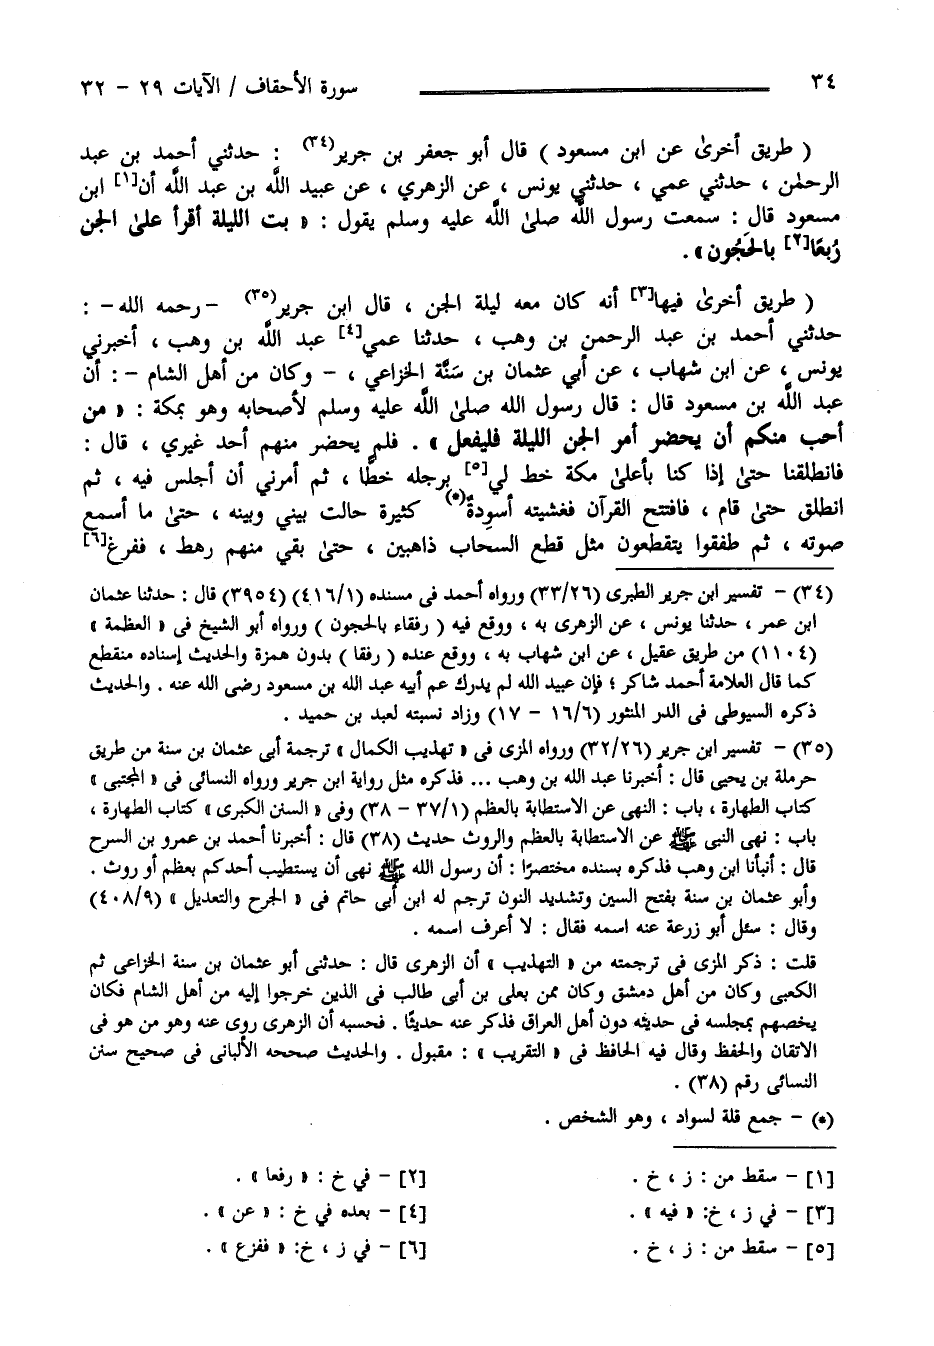 ٣٤ سورة الأحقاف / الآيات ٢٩ - ٣٢
( طريق أخرىٰ عن ابن مسعود ) قال أبو جعفر بن جرير(٣٤) : حدثني أحمد بن عبد
الرحمٰن ، حدثني عمي ، حدثني يونس ، عن الزهري ، عن عبيد اللَّه بن عبد اللَّه أن[١] ابن
مسعود قال : سمعت رسول اللَّه صلىٰ اللَّه عليه وسلم يقول : « بت الليلة أقرأ علىٰ الجن
رُبعًا[٢] بالحَجُون » .
( طريق أخرىٰ فيها[٣] أنه كان معه ليلة الجن ، قال ابن جرير(٣٥) - رحمه الله - :
حدثني أحمد بن عبد الرحمن بن وهب ، حدثنا عمي[٤] عبد اللَّه بن وهب ، أخبرني
يونس ، عن ابن شهاب ، عن أبي عثمان بن سَنَّة الخزاعي ، - وكان من أهل الشام - : أن
عبد اللَّه بن مسعود قال : قال رسول الله صلىٰ اللَّه عليه وسلم لأصحابه وهو بمكة : « من
أحب منكم أن يحضر أمر الجن الليلة فليفعل » . فلم يحضر منهم أحد غيري ، قال :
فانطلقنا حتىٰ إذا كنا بأعلىٰ مكة خط لي[٥] برجله خطًا ، ثم أمرني أن أجلس فيه ، ثم
انطلق حتىٰ قام ، فافتتح القرآن فغشيته أسوِدةٌ(*) كثيرة حالت بيني وبينه ، حتىٰ ما أسمع
صوته ، ثم طفقوا يتقطعون مثل قطع السحاب ذاهبين ، حتىٰ بقي منهم رهط ، ففرغ[٦]
(٣٤) - تفسير ابن جرير الطبرى (٣٣/٢٦) ورواه أحمد فى مسنده (٤١٦/١) (٣٩٥٤) قال : حدثنا عثمان
ابن عمر ، حدثنا يونس ، عن الزهرى به ، ووقع فيه ( رفقاء بالحجون ) ورواه أبو الشيخ فى « العظمة »
(١١٠٤) من طريق عقيل ، عن ابن شهاب به ، ووقع عنده ( رفقا ) بدون همزة والحديث إسناده منقطع
كما قال العلامة أحمد شاكر ؛ فإن عبيد الله لم يدرك عم أبيه عبد الله بن مسعود رضى الله عنه . والحديث
ذكره السيوطى فى الدر المنثور (١٦/٦ - ١٧) وزاد نسبته لعبد بن حميد .
(٣٥) - تفسير ابن جرير (٣٢/٢٦) ورواه المزى فى « تهذيب الكمال » ترجمة أبى عثمان بن سنة من طريق
حرملة بن يحيى قال : أخبرنا عبد الله بن وهب ... فذكره مثل رواية ابن جرير ورواه النسائى فى « المجتبى »
كتاب الطهارة ، باب : النهى عن الاستطابة بالعظم (٣٧/١ - ٣٨) وفى « السنن الكبرى » كتاب الطهارة ،
باب : نهى النبى ﷺ عن الاستطابة بالعظم والروث حديث (٣٨) قال : أخبرنا أحمد بن عمرو بن السرح
قال : أنبأنا ابن وهب فذكره بسنده مختصرًا : أن رسول الله ﷺ نهى أن يستطيب أحدكم بعظم أو روث .
وأبو عثمان بن سنة بفتح السين وتشديد النون ترجم له ابن أبى حاتم فى « الجرح والتعديل » (٤٠٨/٩)
وقال : سئل أبو زرعة عنه اسمه فقال : لا أعرف اسمه .
قلت : ذكر المزى فى ترجمته من « التهذيب » أن الزهرى قال : حدثنى أبو عثمان بن سنة الخزاعى ثم
الكعبى وكان من أهل دمشق وكان ممن بعلى بن أبى طالب فى الذين خرجوا إليه من أهل الشام فكان
يخصهم بمجلسه فى حديثه دون أهل العراق فذكر عنه حديثًا . فحسبه أن الزهرى روى عنه وهو من هو فى
الاتقان والحفظ وقال فيه الحافظ فى « التقريب » : مقبول . والحديث صححه الألبانى فى صحيح سنن
النسائى رقم (٣٨) .
(*) - جمع قلة لسواد ، وهو الشخص .
[١] - سقط من : ز ، خ . [٢] - في خ : « رفعا » .
[٣] - في ز ، خ: « فيه » . [٤] - بعده في خ : « عن » .
[٥] - سقط من : ز ، خ . [٦] - في ز ، خ: « ففزع » .